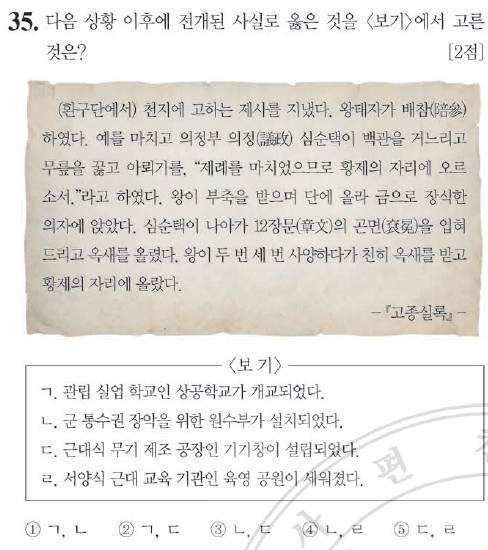 35. 다음 상황 이후에 전개된 사실로 옳은 것을 〈보기〉에서 고른
것은? [2점]
(환구단에서) 천지에 고하는 제사를 지냈다. 왕태자가 배참(陪參)
하였다. 예를 마치고 의정부 의정(議政) 심순택이 백관을 거느리고
무릎을 꿇고 아뢰기를, “제례를 마치었으므로 황제의 자리에 오르
소서.”라고 하였다. 왕이 부축을 받으며 단에 올라 금으로 장식한
의자에 앉았다. 심순택이 나아가 12장문(章文)의 곤면(袞冕)을 입혀
드리고 옥새를 올렸다. 왕이 두 번 세 번 사양하다가 친히 옥새를 받고
황제의 자리에 올랐다.
-『고종실록』-
〈보 기〉
ㄱ. 관립 실업 학교인 상공학교가 개교되었다.
ㄴ. 군 통수권 장악을 위한 원수부가 설치되었다.
ㄷ. 근대식 무기 제조 공장인 기기창이 설립되었다.
ㄹ. 서양식 근대 교육 기관인 육영 공원이 세워졌다.
① ㄱ, ㄴ ② ㄱ, ㄷ ③ ㄴ, ㄷ ④ ㄴ, ㄹ ⑤ ㄷ, ㄹ